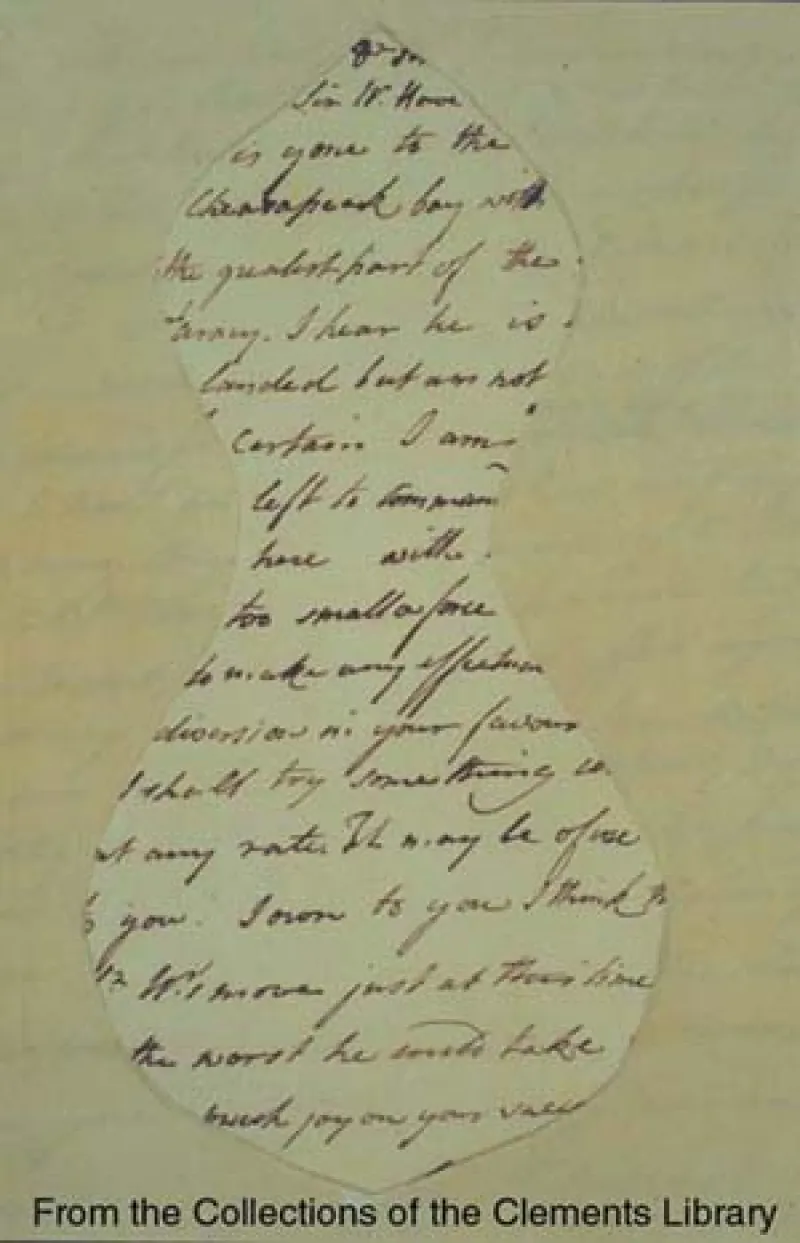 Sir W. Howe
is gone to the
Chesapeak bay with
the greatest part of the
army. I hear he is
landed but am not
certain I am
left to command
here with
too small a force
to make any effectual
diversion in your favour
I shall try something
at any rate. It may be of use
to you. I own to you I think
Sr W's move just at this time
the worst he could take
much joy on your succ
From the Collections of the Clements Library